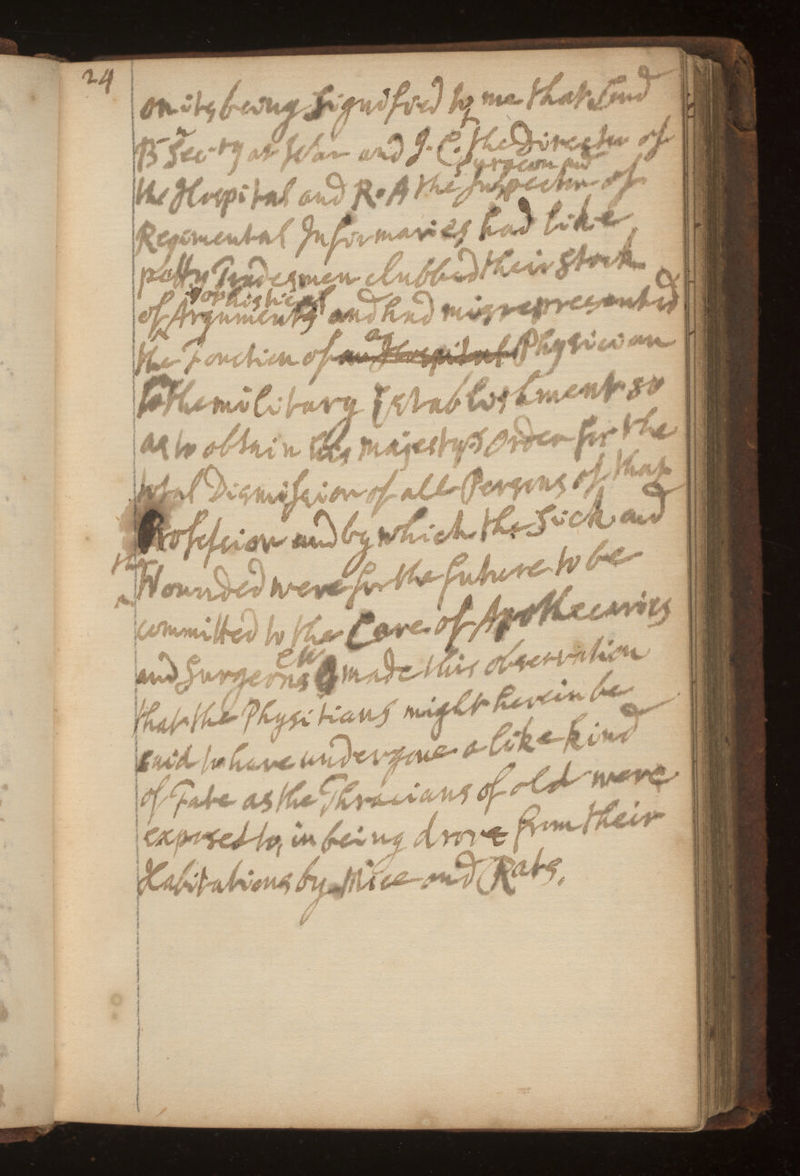 24
on its being signified to me that Lord
B. Secrty at War and J. C. the Director of
Surgeon and
the Hospital and R. A the Inspector of
Regimental Infirmaries had like
petty Tradesmen clubbed their Stock
sophistical
of Arguments and had misrepresented
a
the Fonction of an Hospital Physician
to the military Establishment so
as to obtain his majestys Order for the
total Dismission of all Persons of that
Profession and by which the Sick and
Wounded were for the future to be
committed to the Care of Apothecaries
and Surgeons made this observation
that the Physitians might herein be
said to have undergone a like kind
of Fate as the Thracians of old were
exposed to, in being drove from their
Habitations by Mice and Rats.